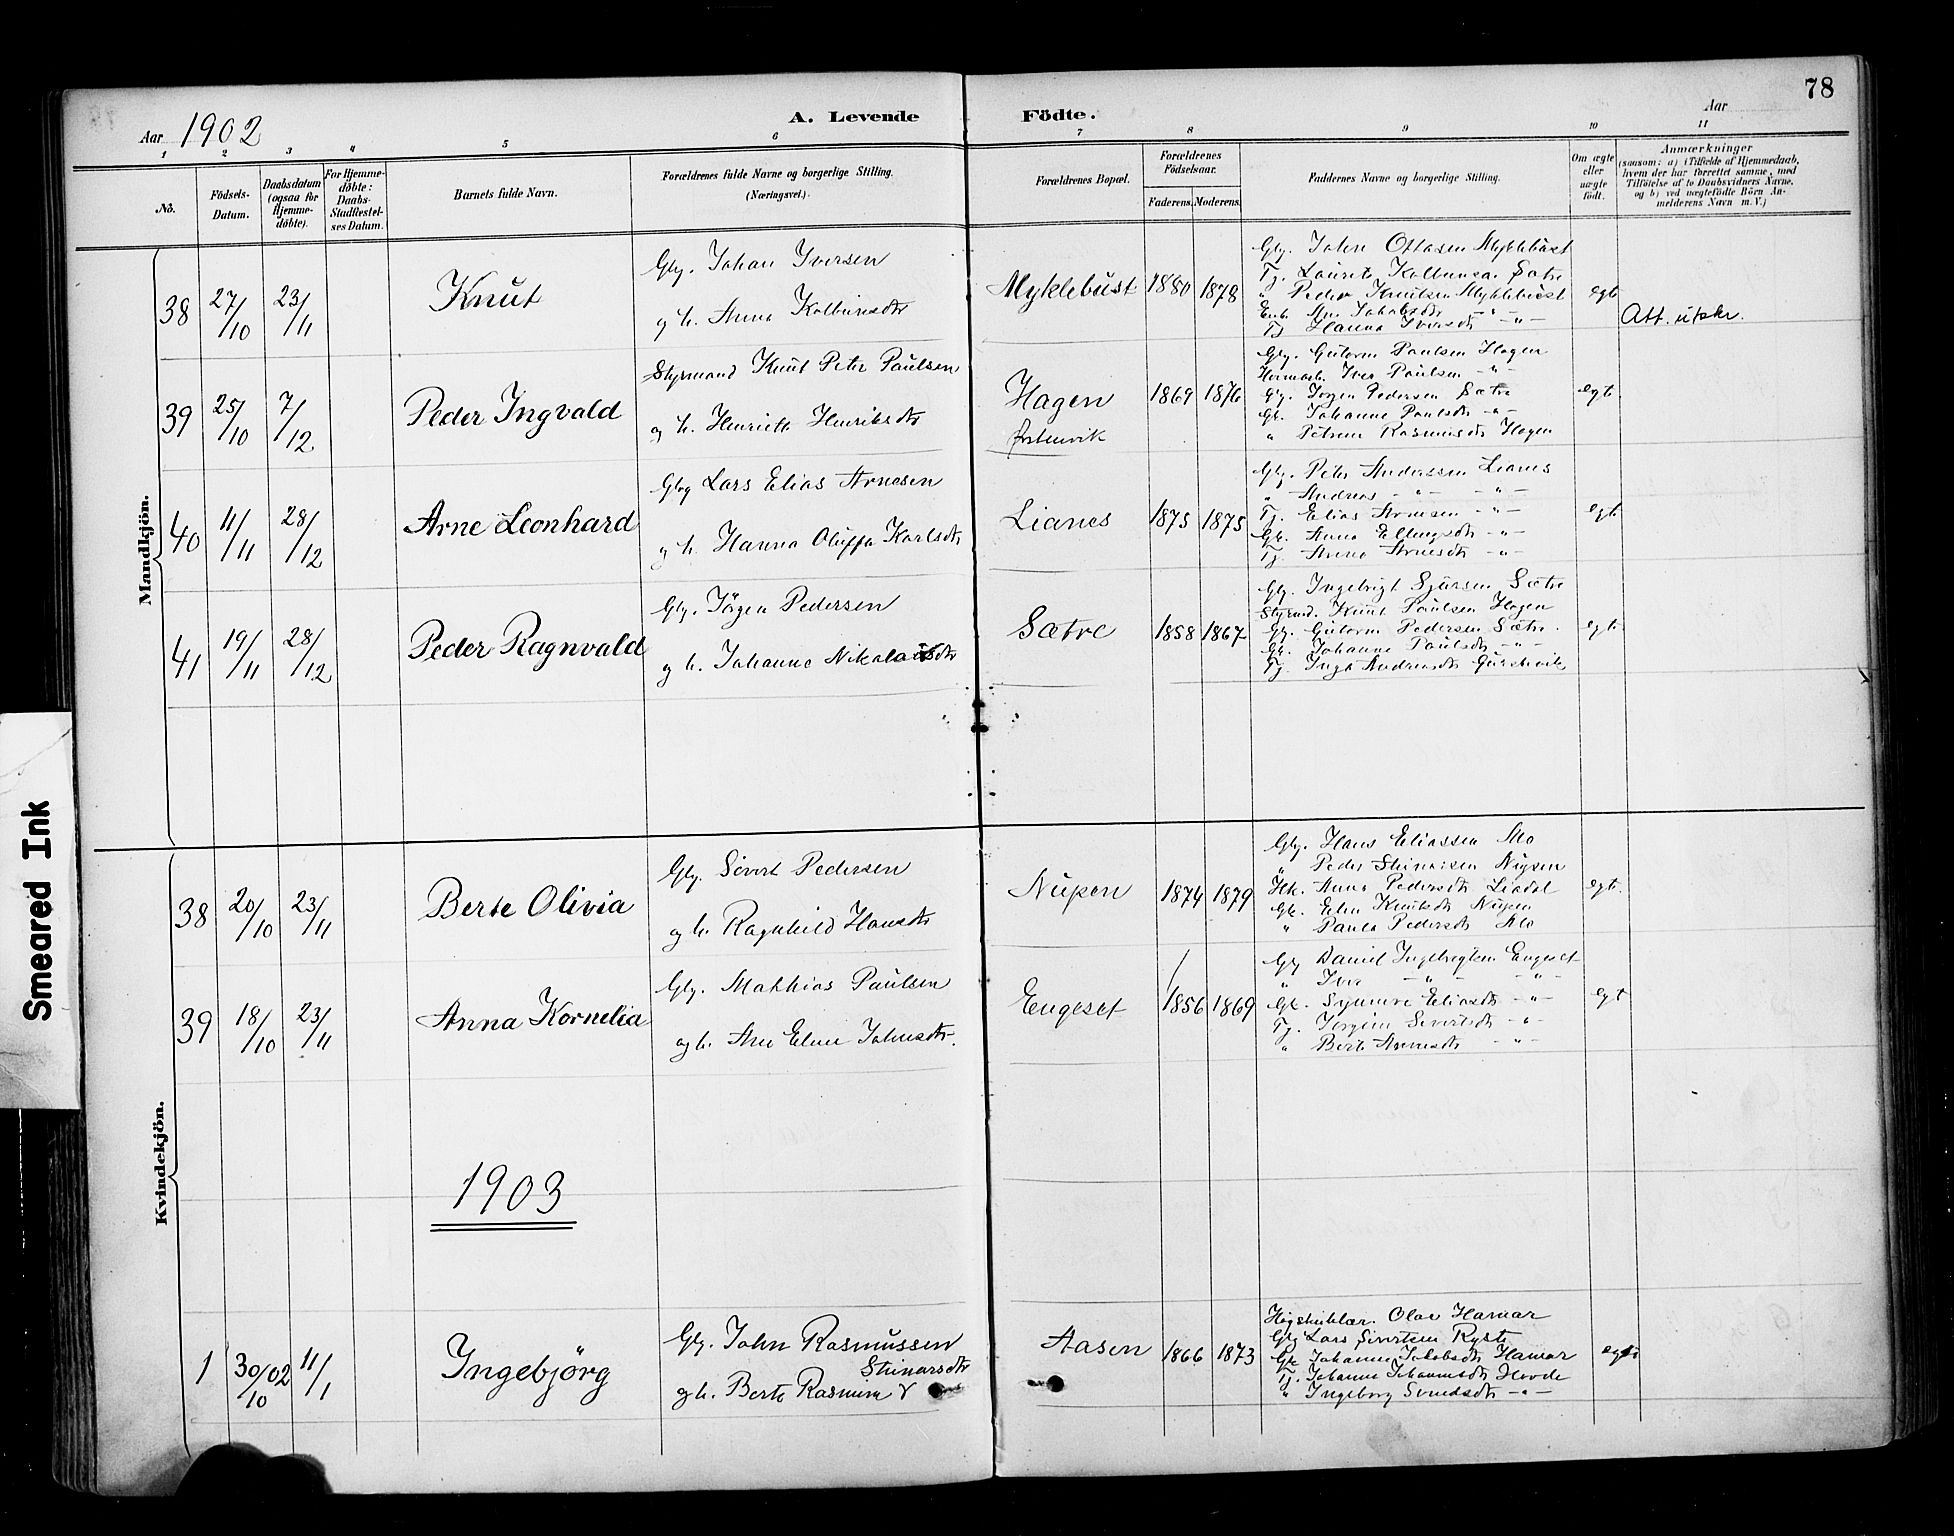 78
Aar 1902 A. Levende Födte. Aar
1 2 3 4 5 6 7 8 9 10 11
No.
Födsels-Datum.
Daabsdatum (ogsaa for Hjemme-döbte).
For Hjemme-döbte: Daabs-Stadfæstel-ses Datum.
Barnets fulde Navn.
Forældrenes fulde Navne og borgerlige Stilling. (Næringsvei.)
Forældrenes Bopæl.
Forældrenes Födselsaar.
Faderens. Moderens.
Faddernes Navne og borgerlige Stilling.
Om ægte eller uægte födt.
Anmærkninger
(saasom: a) i Tilfælde af Hjemmedaab,
hvem der har forrettet samme, med
Tilföielse af to Daabsvidners Navne,
og b) ved uægtefödte Börn An-
melderens Navn m. V.)
Mandkjön.
38 27/10 23/11 Knut
Gbr. Johan Iversen
og h. Anna Kolbeinsdtr
Myklebust 1880 1878
Gbr. John Ottosen Myklebust
Tj. Laurits Sætre
" Peder Knutsen Myklebust
Enk. Ane Jakobsdtr - " -
Tj. Hanna Iversdtr - " -
egt.
Att. utskr.
39 25/10 7/12 Peder Ingvald
Styrmand Knut Peter Paulsen
og h. Henriette Henriksdtr
Hagen
1869 1876
Gbr. Gutorm Paulsen Hagen
Iver Paulsen - " -
Gbr. Jörgen Pedersen Sætre
Gk. Johanne Paulsdtr - " -
" Petrine Rasmusdtr Hagen
egt.
40 11/11 28/12 Arne Leonhard
Gbr Lars Elias Arnesen
og h. Hanna Oluffa Karlsdtr
Lianes 1875 1875
Gbr. Peter Anderssen Lianes
" Andreas - " - - " -
Tj. Elias Arnesen - " -
Gk. Anna Ellingsdtr - " -
Tj. Anna Arnesdtr - " -
egt.
41 19/11 28/12 Peder Ragnvald
Gbr. Jörgen Pedersen
og h. Johanne Nikolaisdtr
Sætre 1858 1867
Gbr. Ingebrigt Sjursen Sætre
Styrmd. Knut Paulsen Hagen
Gbr. Gutorm Pedersen Sætre.
Gk. Johanne Paulsdtr - " -
Tj. Inga Andreasdtr Gurskevik
egt.
Kvindekjön.
38 20/10 23/11 Berte Olivia
Gbr. Sivert Pedersen
og h. Ragnhild Hansdtr
Nupen 1874 1879
Gbr. Hans Eliassen Mo
" Peder Steinarsen Nupen
Hk. Anna Pedersdtr Liadal
Gk. Elen Knutsdtr Nupen
" Paula Pedersdtr Mo
egt.
39 18/10 23/11 Anna Kornelia
Gbr. Mathias Paulsen
og h. Ane Eline Johnsdtr.
Engeset 1856 1869
Gbr Daniel Ingebrigtsen Engeset
" Iver - " - - " -
Gk. Synnøve Eliasdtr - " -
Tj. Jorgine Sivertsdtr - " -
" Berte Arnesdtr - " -
egt
1903
1 30/10 02 11/1 Ingebjörg
Gbr. John Rasmussen
Steinarsdtr
og h. Berte Rasmine
Aasen 1866 1873
Höyskulelær. Olav Hamar
Gbr Lars Sivertsen Ryste
Gk Johanne Jakobsdtr Hamar
Tj. Johanne Johannesdtr Hovde
" Ingeborg Svendsdtr - " -
egt
Smeared Ink